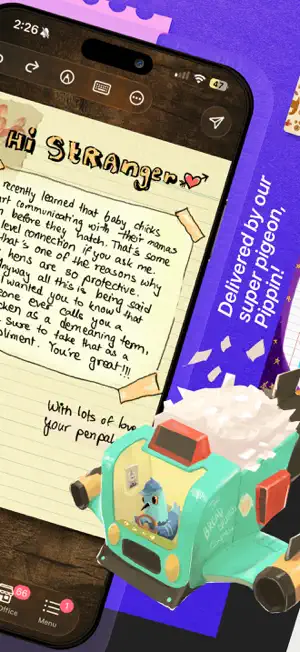 2:26
47
Hi Stranger
recently learned that baby chicks
art communicating with their mamas
before they hatch. That's some
level connection if you ask me.
that's one of the reasons why
hens are so protective.
nyway all this is being said
I wanted you to know that
one ever calls you a
cken as a demeaning term,
sure to take that as a
pliment. You're great!!!
With lots of love
your penpal
Delivered by our
super pigeon,
Pippin!
BREAD
66
1
Office
Menu